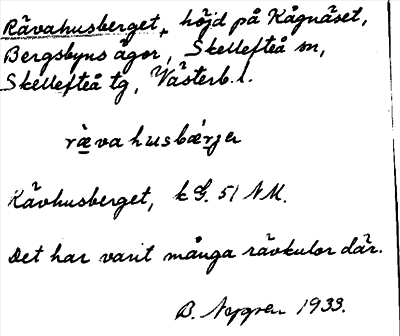 Rävahusberget, höjd på Kågnäset,
Bergsbyns ägor, Skellefteå sn,
Skellefteå tg, Västerb. l.
rävahusbärjer
Rävhusberget, k G. 51 NM.
Det har varit många rävkulor där.
B. 1933.